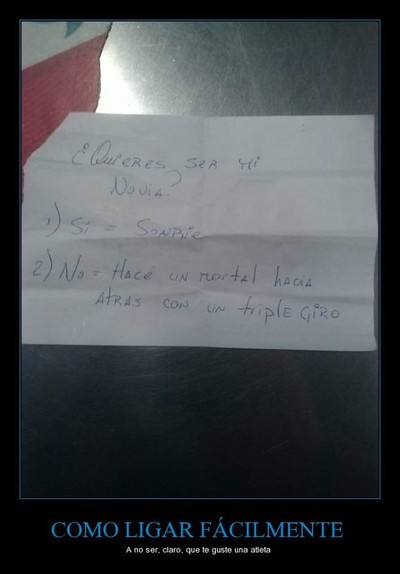 ¿Quieres ser mi
Novia?
1) Si = Sonrie
2) No = Hace un mortal hacia
atras con un triple giro
COMO LIGAR FÁCILMENTE
A no ser, claro, que te guste una atleta